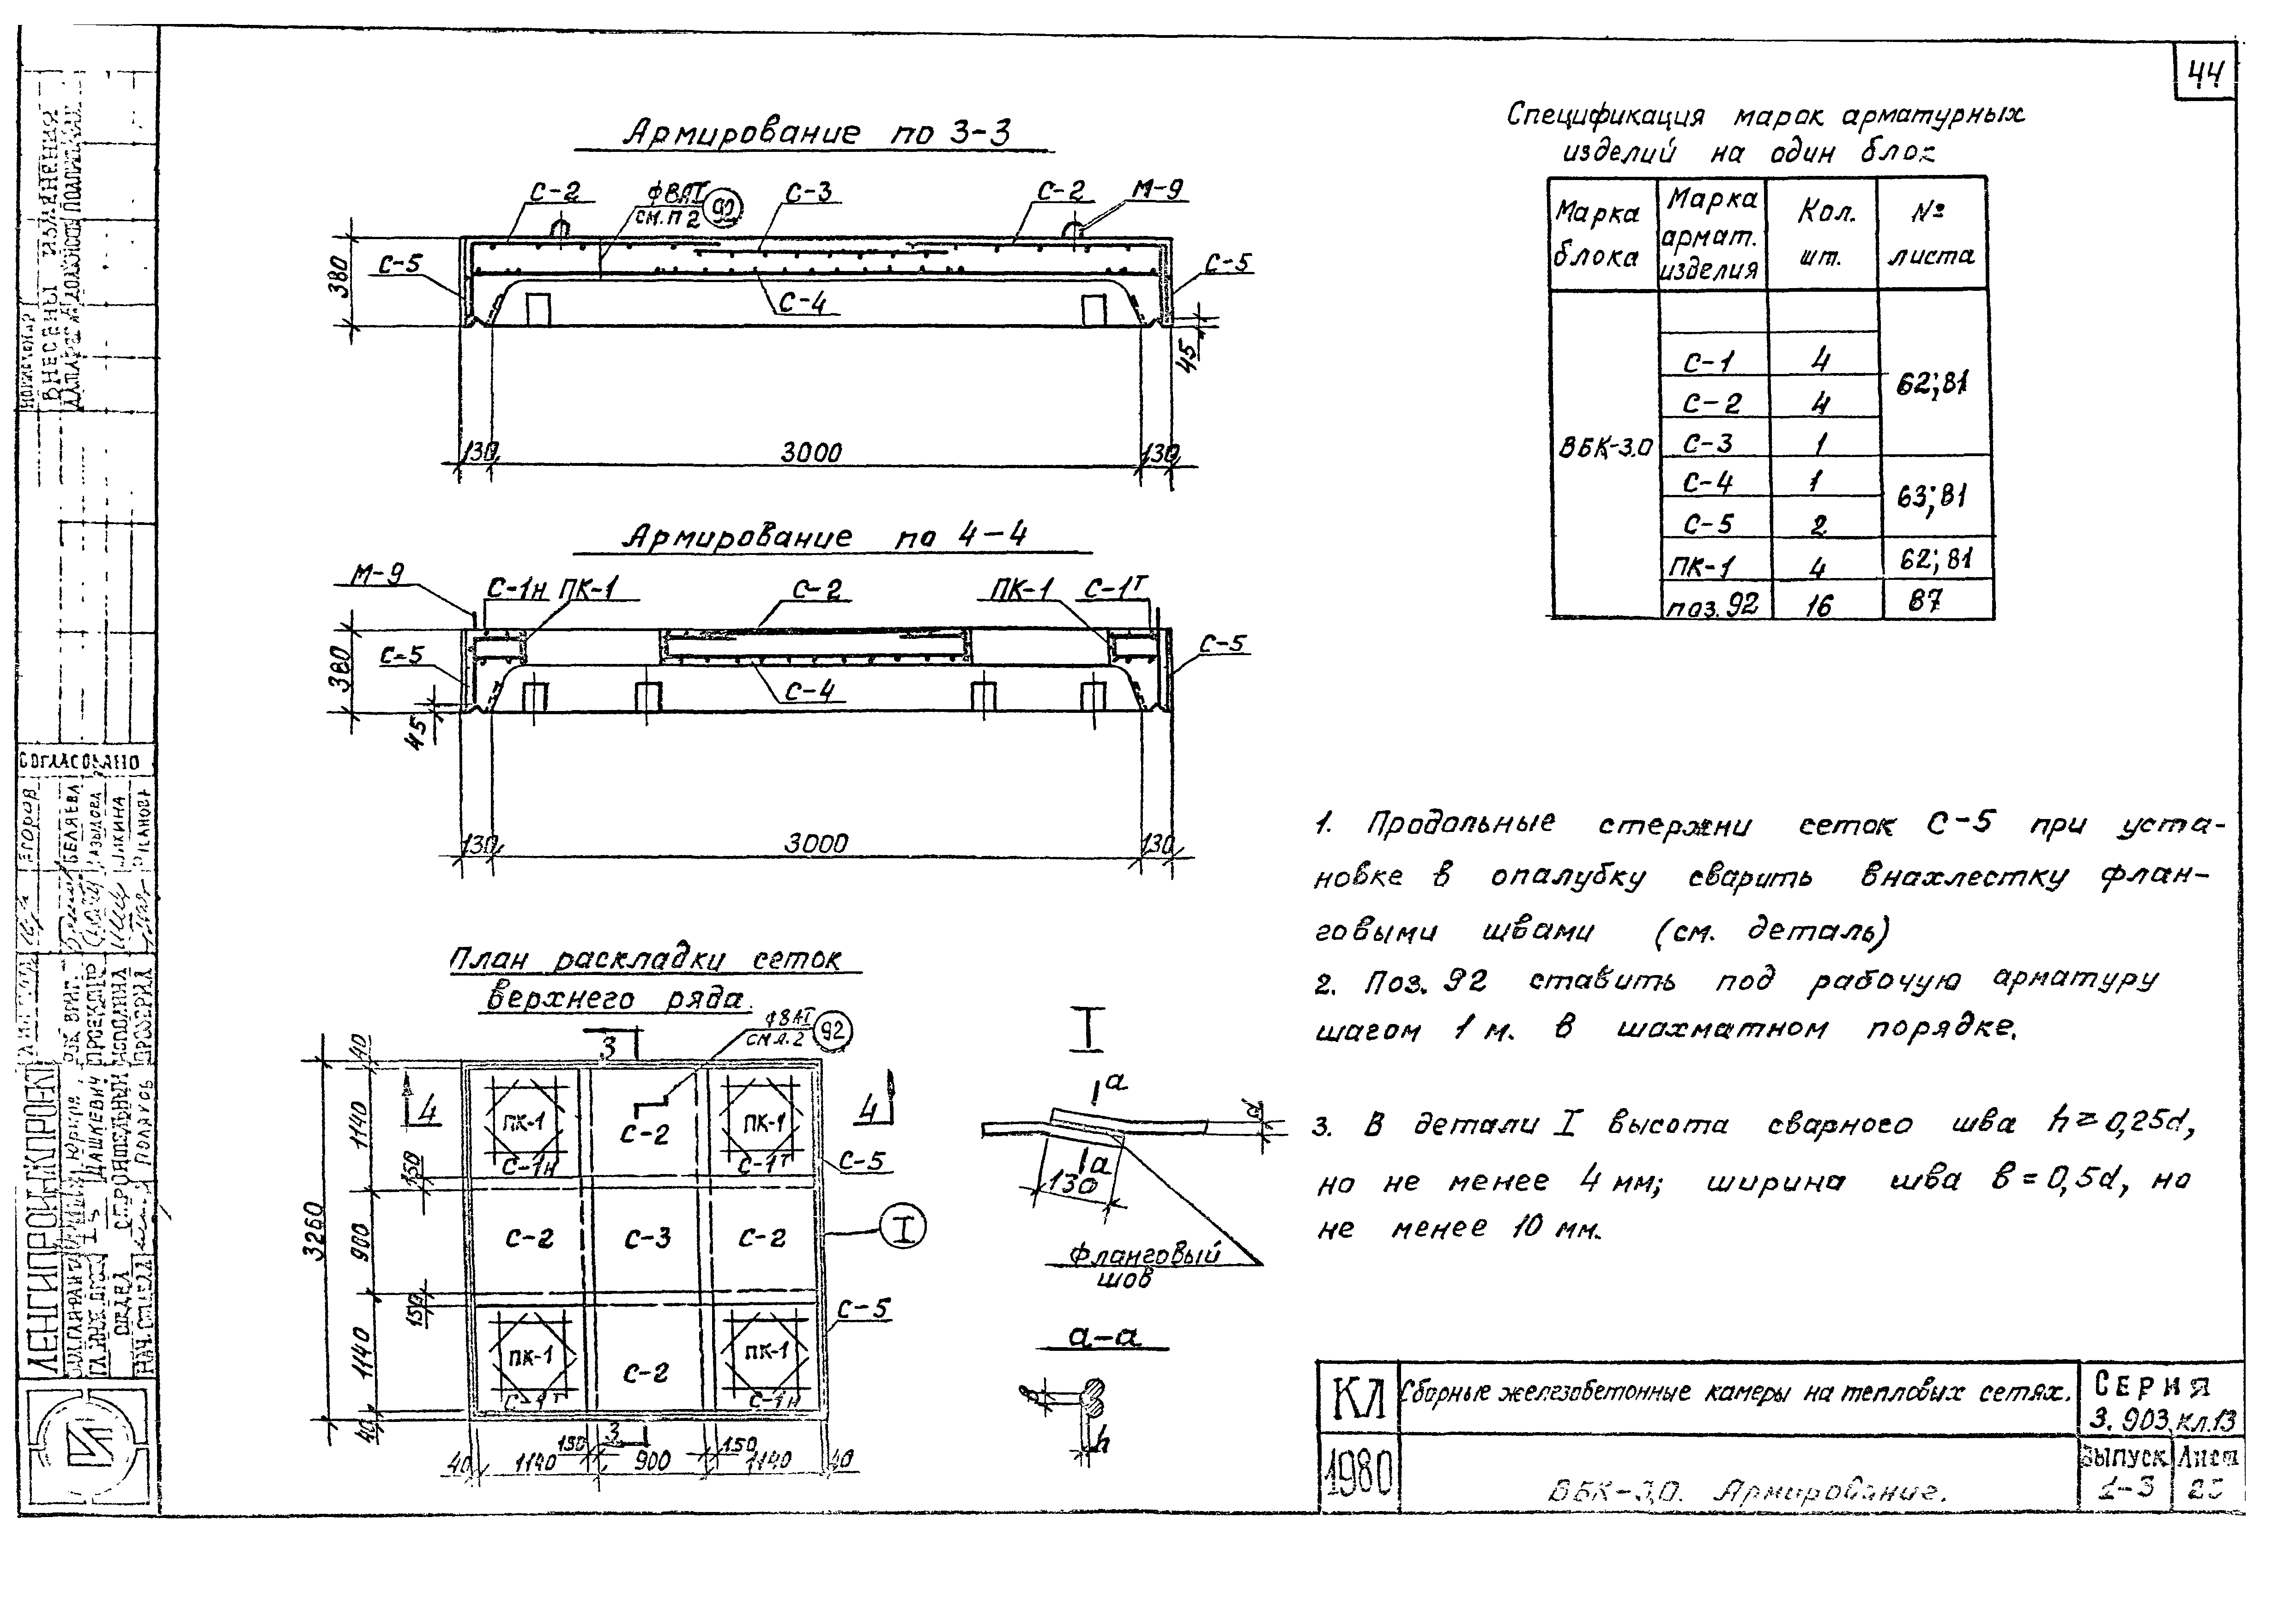 44
Армирование по 3-3
С-2
ф8АI
см. п 2
90
С-3
С-2
М-9
С-5
С-5
С-4
380
45
130
3000
130
Армирование по 4-4
М-9
С-1н
ПК-1
С-2
ПК-1
С-1т
С-5
С-5
С-4
380
45
130
3000
130
План раскладки сеток
верхнего ряда.
ф8АI
см. п. 2
92
3
4
4
ПК-1
С-1н
С-2
ПК-1
С-1т
С-5
С-2
С-3
С-2
I
С-5
ПК-1
С-1т
С-2
ПК-1
С-1н
3
3260
40
1140
150
900
150
1140
40
40
1140
150
900
150
1140
40
I
а
а
d
130
Фланговый
шов
а-а
в
h
Спецификация марок арматурных
изделий на один блок
Марка блока
Марка армат. изделия
Кол. шт.
№ листа
ВБК-3.0
С-1 4 62;81
С-2 4
С-3 1
С-4 1 63;81
С-5 2
ПК-1 4 62;81
поз.92 16 87
1. Продольные стержни сеток С-5 при уста-
новке в опалубку сварить внахлестку флан-
говыми швами (см. деталь)
2. Поз. 92 ставить под рабочую арматуру
шагом 1 м. в шахматном порядке.
3. В детали I высота сварного шва h=0,25d,
но не менее 4 мм; ширина шва в=0,5d, но
не менее 10 мм.
КЛ
Сборные железобетонные камеры на тепловых сетях.
Серия
3.903 кл.13
1980
ВБК-3,0. Армирование.
Выпуск
1-3
Лист
ВНЕСЕНЫ ИЗМЕНЕНИЯ
СОГЛАСОВАНО
ЕГОРОВ
БЕЛЯЕВА
ЛЕНГИПРОИНЖПРОЕКТ